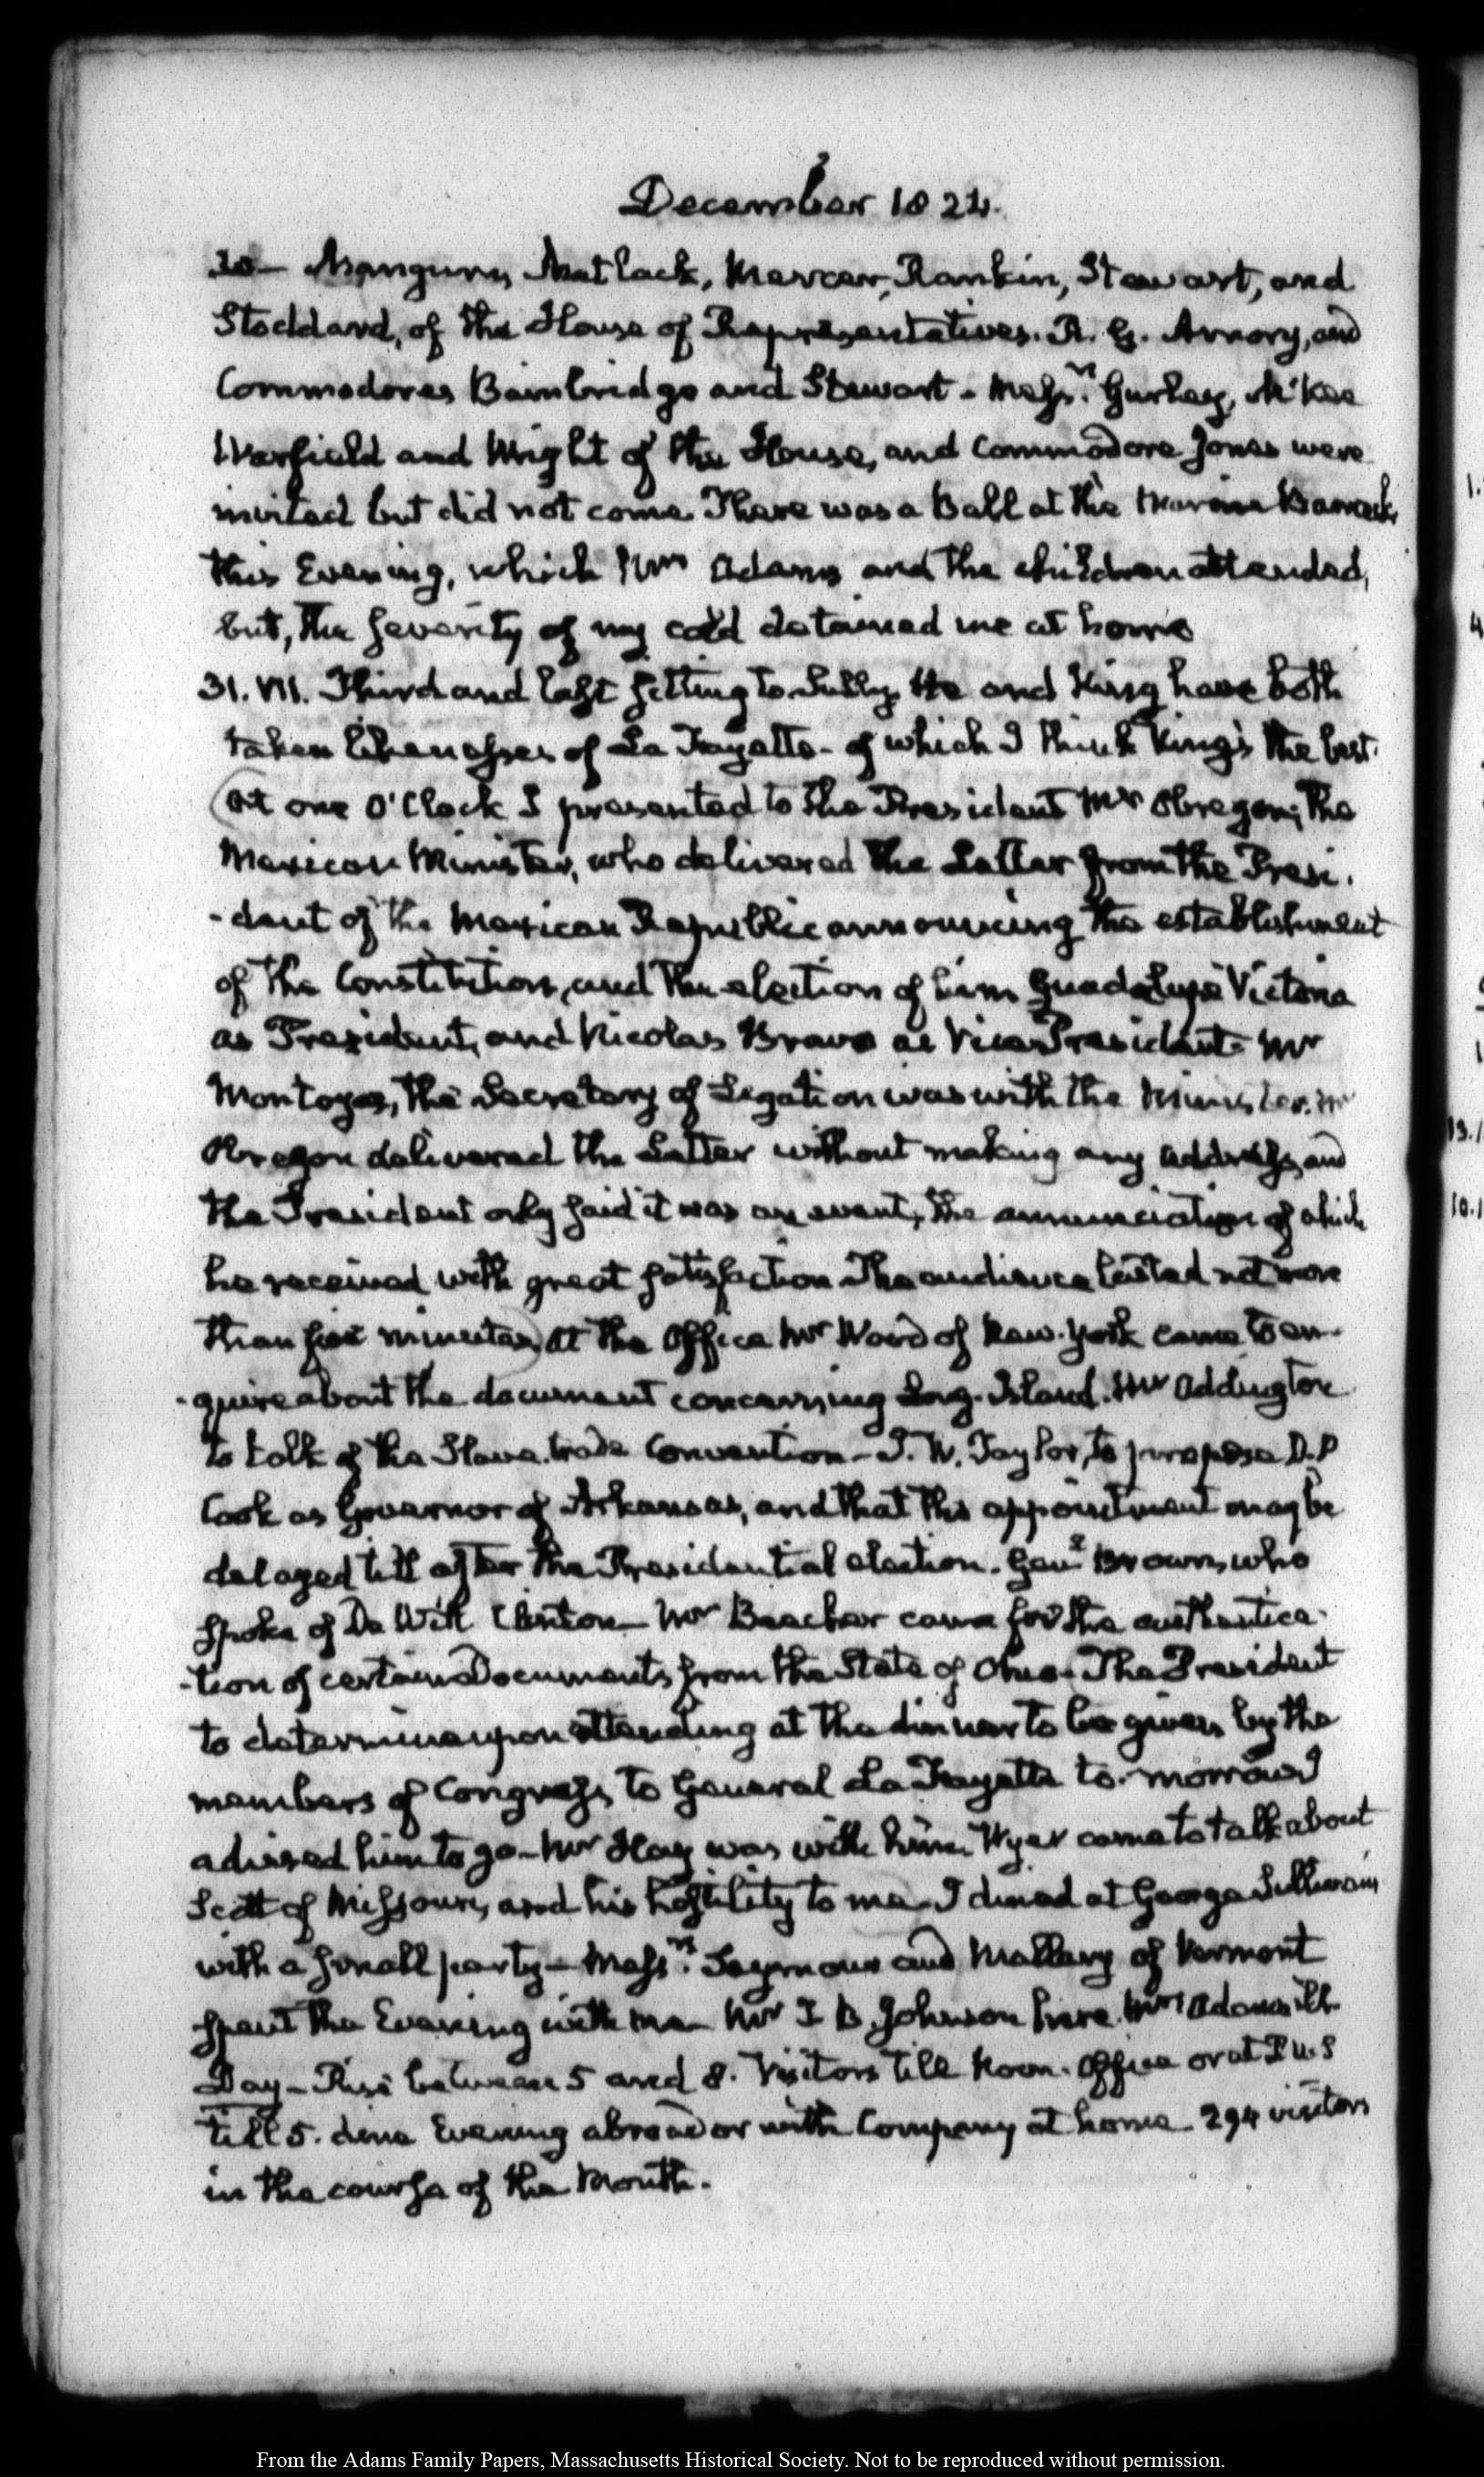 December 1824.
30— Mangum, Matlack, Mercer, Rankin, Stewart, and
Stoddard, of the House of Representatives. R. G. Amory, and
Commodores Bainbridge and Stewart - Messrs. Gurley, McKee
Warfield and Wright of the House, and Commodore Jones were
invited but did not come. There was a Ball at the Marine Barracks
this Evening, which Mrs Adams and the children attended,
but, the severity of my cold detained me at home
31. VII. Third and last sitting to Sully. He and King have both
taken likenesses of La Fayette - of which I think King's the best.
(At one O'Clock I presented to the President Mr Obregon, the
Mexican Minister, who delivered the Letter from the Presi-
-dent of the Mexican Republic announcing the establishment
of the Constitution, and the election of him Guadalupe Victoria
as President, and Nicolas Bravo as Vice President. Mr
Montoya, the Secretary of Legation was with the Minister. Mr
Obregon delivered the Letter without making any address, and
the President only said it was an event, the annunciation of which
he received with great satisfaction. The audience lasted not more
than five minutes) At the Office Mr Ward of New-York came to en-
-quire about the document concerning Long-Island. Mr Addington
to talk of the Slave-trade Convention - J. W. Taylor, to propose D. P
Cook as Governor of Arkansas, and that the appointment may be
delayed till after the Presidential election. Genl Brown, who
spoke of De Witt Clinton - Mr Beecher came for the authentica-
-tion of certain Documents from the State of Ohio - The President
to determine upon attending at the dinner to be given by the
members of Congress to General La Fayette to-morrow I
advised him to go - Mr Hay was with him. Wyer came to talk about
Scott of Missouri, and his hostility to me - I dined at George Sullivan's
with a small party - Messrs. Seymour and Mallary of Vermont
spent the Evening with me - Mr I B. Johnson here. Mrs Adams ill.
Day - Rise between 5 and 8. Visitors till Noon. Office or at P.U.S
till 5. dine Evening abroad or with Company at home - 294 visitors
in the course of the Month.
1.
4
13.
10.
From the Adams Family Papers, Massachusetts Historical Society. Not to be reproduced without permission.